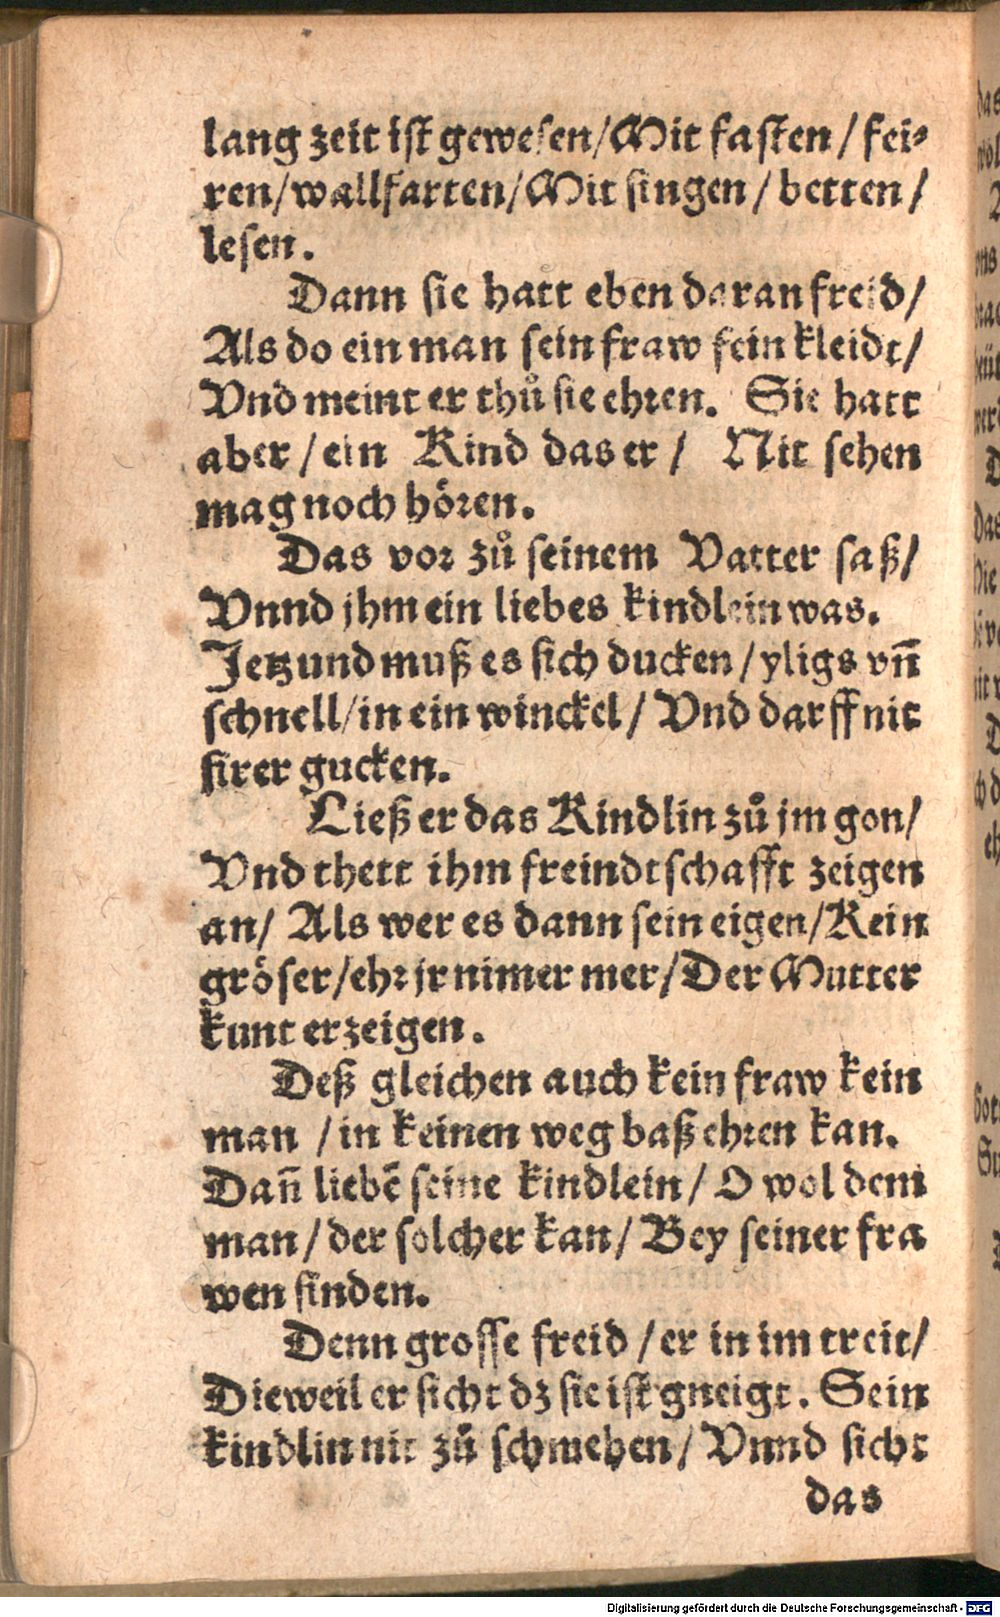 lang zeit ist gewesen/Mit fasten / fei⸗
ren/wallfarten/Mit singen / betten /
lesen.
Dann sie hatt eben daran freid/
Als do ein man sein fraw fein kleidt/
Vnd meint er thuͦ sie ehren. Sie hatt
aber / ein Kind das er / Nit sehen
mag noch hoͤren.
Das vor zuͦ seinem Vatter saß/
Vnnd jhm ein liebes kindlein was.
Jetzund muß es sich ducken / yligs vñ
schnell/in ein winckel/ Vnd darff nit
firer gucken.
Ließ er das Kindlin zuͦ jm gon/
Vnd thett ihm freindtschafft zeigen
an/ Als wer es dann sein eigen/Kein
groͤser/ehr jr nimer mer/Der Mutter
kunt erzeigen.
Deß gleichen auch kein fraw kein
man / in keinen weg baß ehren kan.
Dañ liebẽ seine kindlein/ O wol dem
man/ der solcher kan/ Bey seiner fra
wen finden.
Denn grosse freid / er in im treit/
Dieweil er sicht dz sie ist gneigt. Sein
kindlin nit zuͦ schmehen/ Vnnd sicht
das
Digitalisierung gefördert durch die Deutsche Forschungsgemeinschaft - DFG